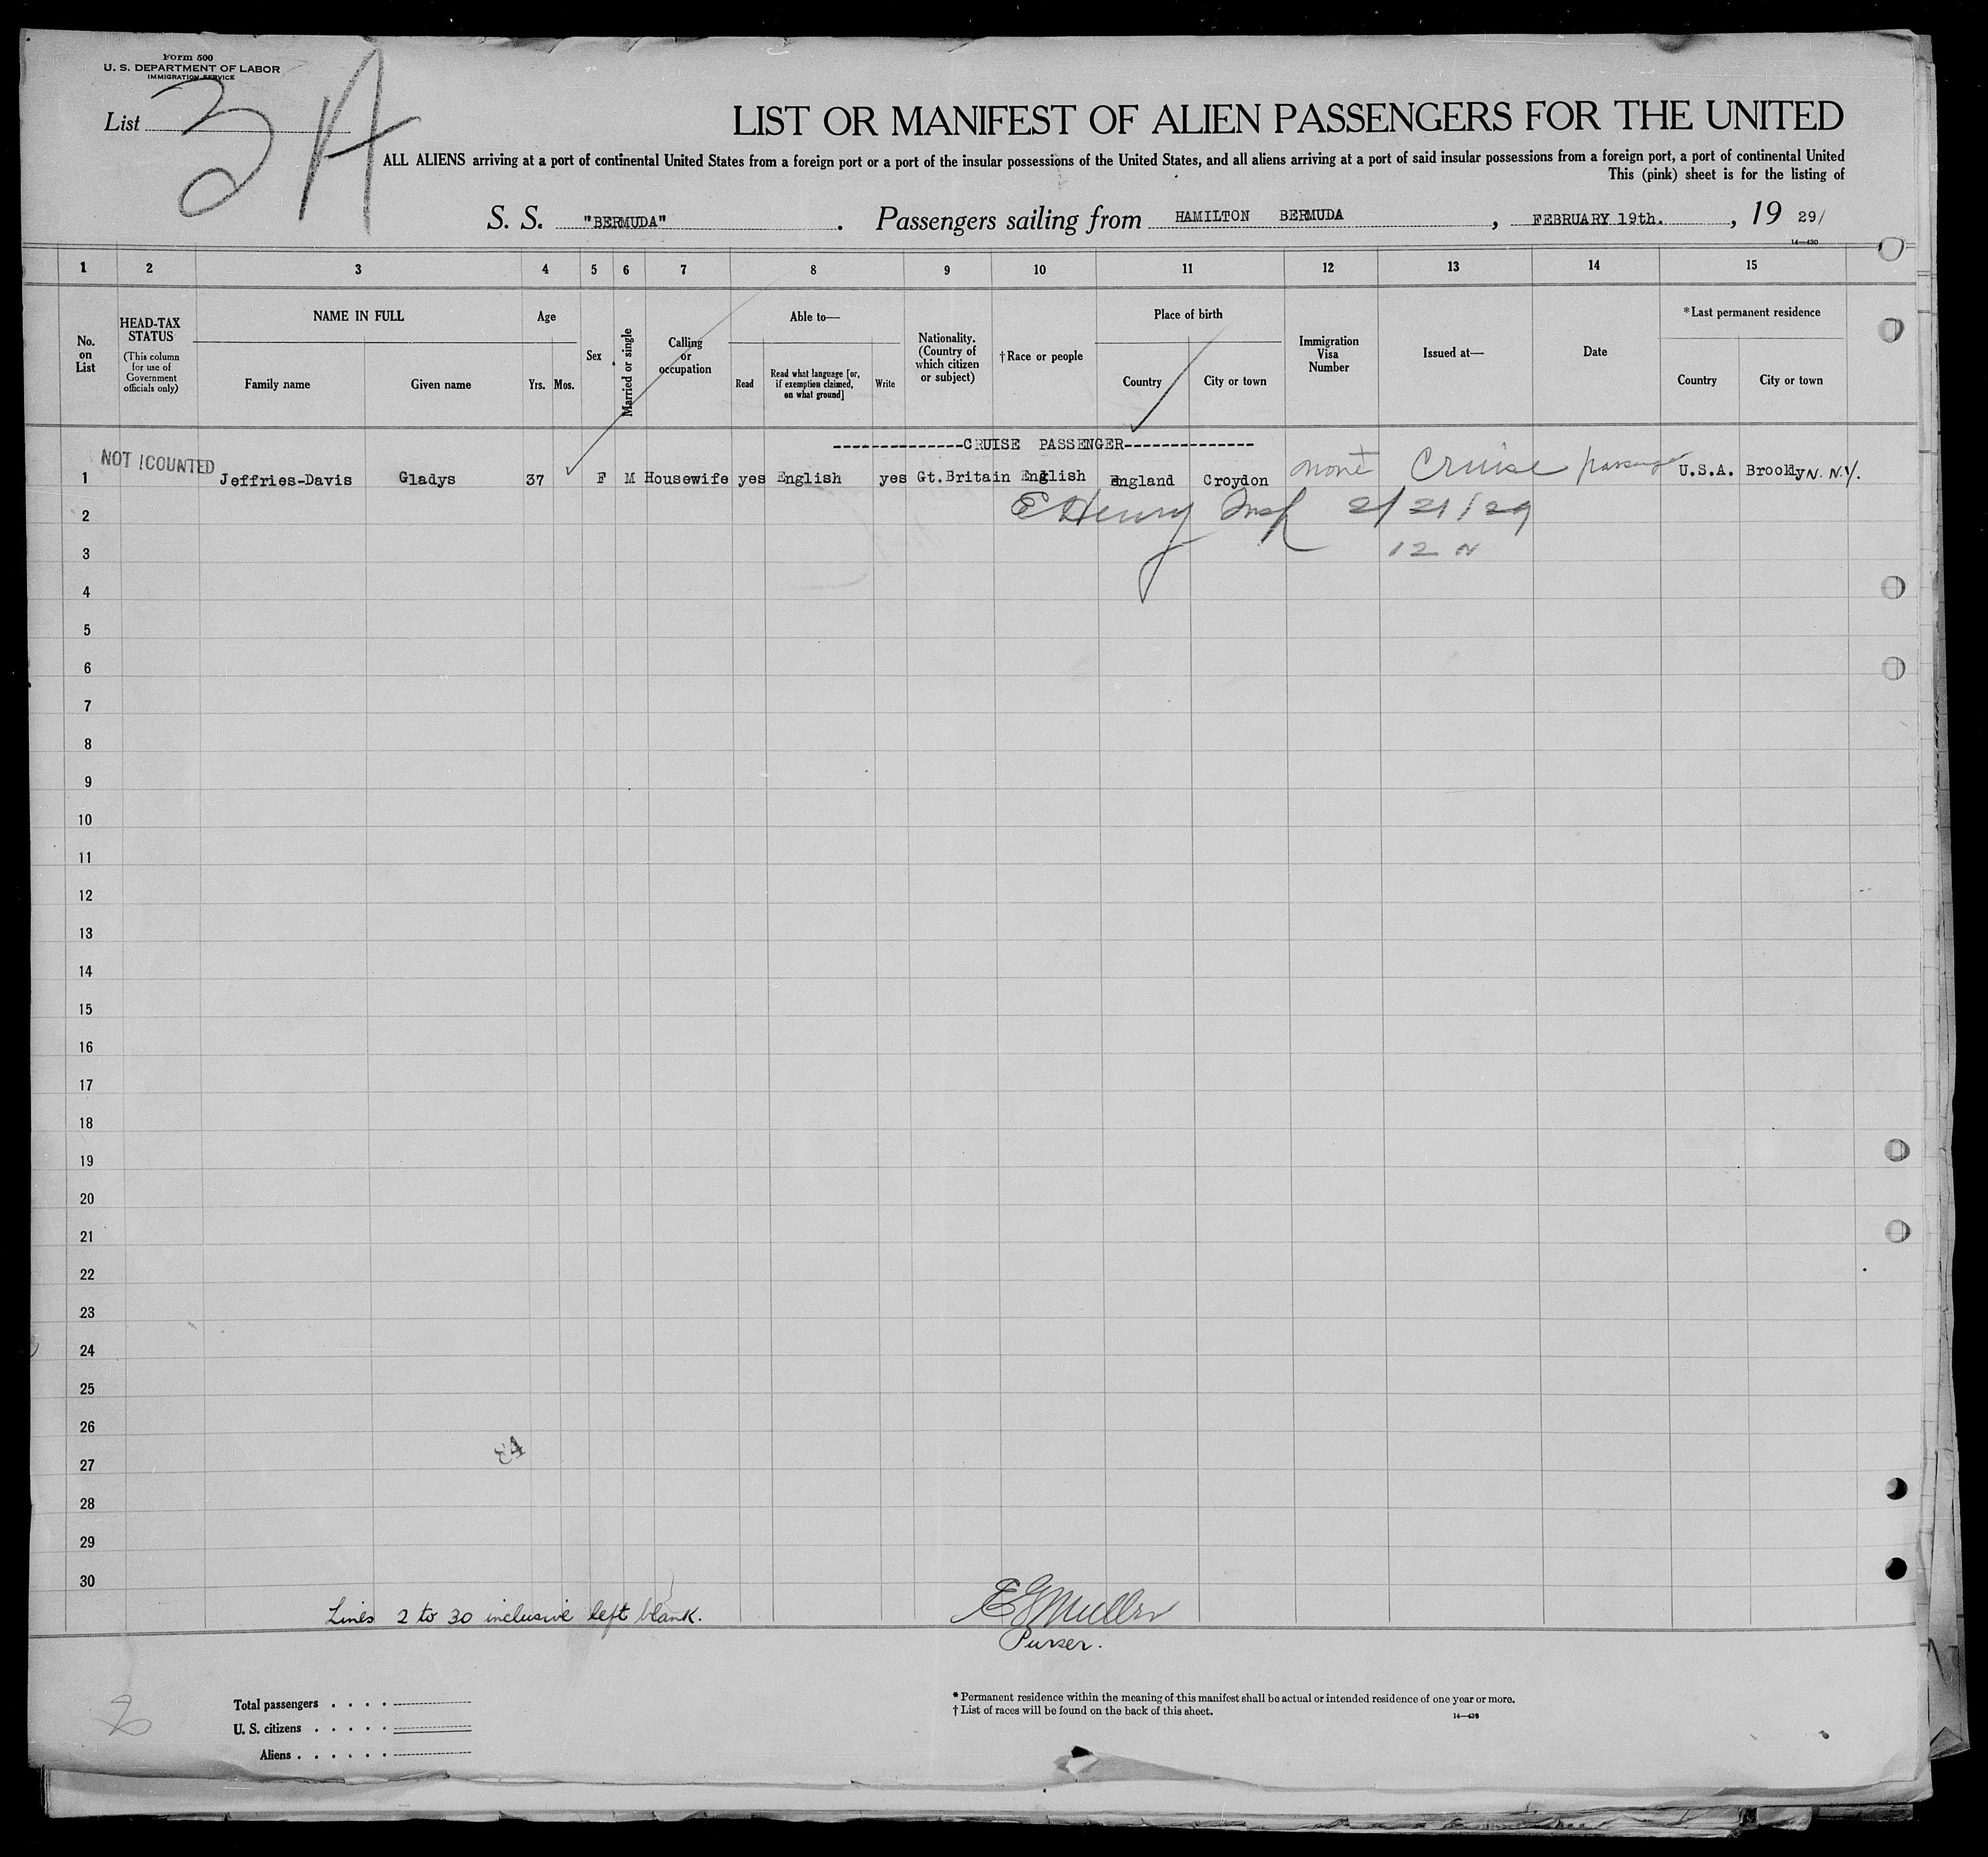 Form 500
U. S. DEPARTMENT OF LABOR
IMMIGRATION SERVICE
List 2 A
LIST OR MANIFEST OF ALIEN PASSENGERS FOR THE UNITED
ALL ALIENS arriving at a port of continental United States from a foreign port or a port of the insular possessions of the United States, and all aliens arriving at a port of said insular possessions from a foreign port, a port of continental United
This (pink) sheet is for the listing of
S. S. "BERMUDA" . Passengers sailing from HAMILTON BERMUDA , FEBRUARY 19th. , 19 29/
14—430
1 2 3 4 5 6 7 8 9 10 11 12 13 14 15
No. on List
HEAD-TAX STATUS (This column for use of Government officials only)
NAME IN FULL
Family name Given name
Age
Yrs. Mos.
Sex
Married or single
Calling or occupation
Able to—
Read Read what language [or, if exemption claimed, on what ground] Write
Nationality. (Country of which citizen or subject)
†Race or people
Place of birth
Country City or town
Immigration Visa Number
Issued at—
Date
*Last permanent residence
Country City or town
--------------CRUISE PASSENGER--------------
1 NOT COUNTED Jeffries-Davis Gladys 37 F M Housewife yes English yes Gt.Britain English England Croydon none Cruise passenger U.S.A. Brooklyn N. N.Y.
2 E Henry Insp 2/21/29
3 12 N
4
5
6
7
8
9
10
11
12
13
14
15
16
17
18
19
20
21
22
23
24
25
26
27
28
29
30
Lines 2 to 30 inclusive left blank.
E G Muller
Purser.
Total passengers . . . .
U. S. citizens . . . . .
Aliens . . . . . .
* Permanent residence within the meaning of this manifest shall be actual or intended residence of one year or more.
† List of races will be found on the back of this sheet.
14—430